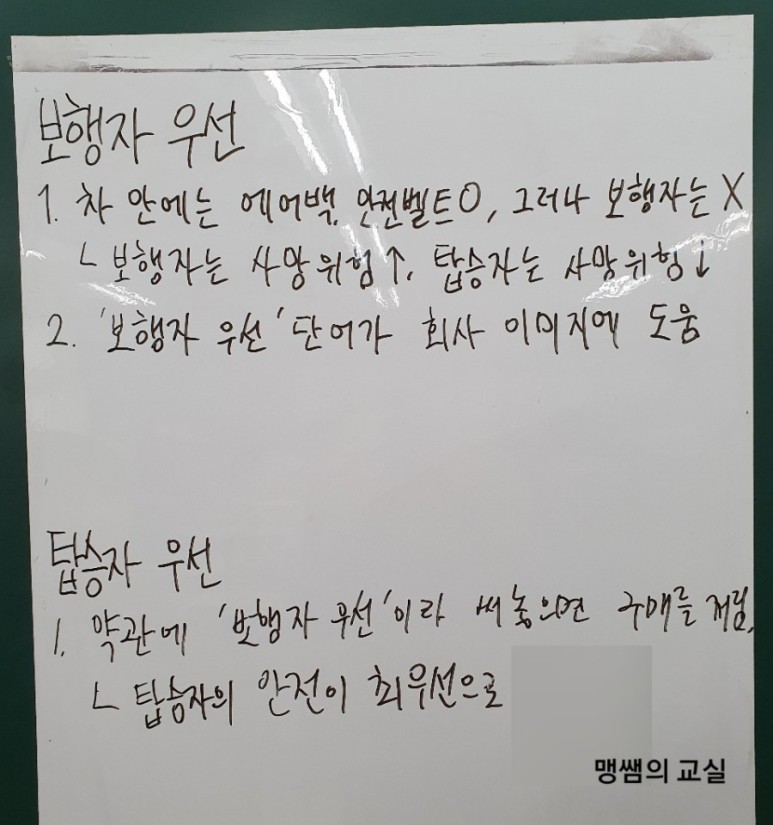 보행자 우선
1. 차 안에는 에어백, 안전벨트O, 그러나 보행자는 X
ㄴ보행자는 사망위험↑, 탑승자는 사망위험↓
2. '보행자 우선' 단어가 회사 이미지에 도움
탑승자 우선
1. 약관에 '보행자 우선'이라 써놓으면 구매를 저림.
ㄴ 탑승자의 안전이 최우선으로
맹쌤의 교실